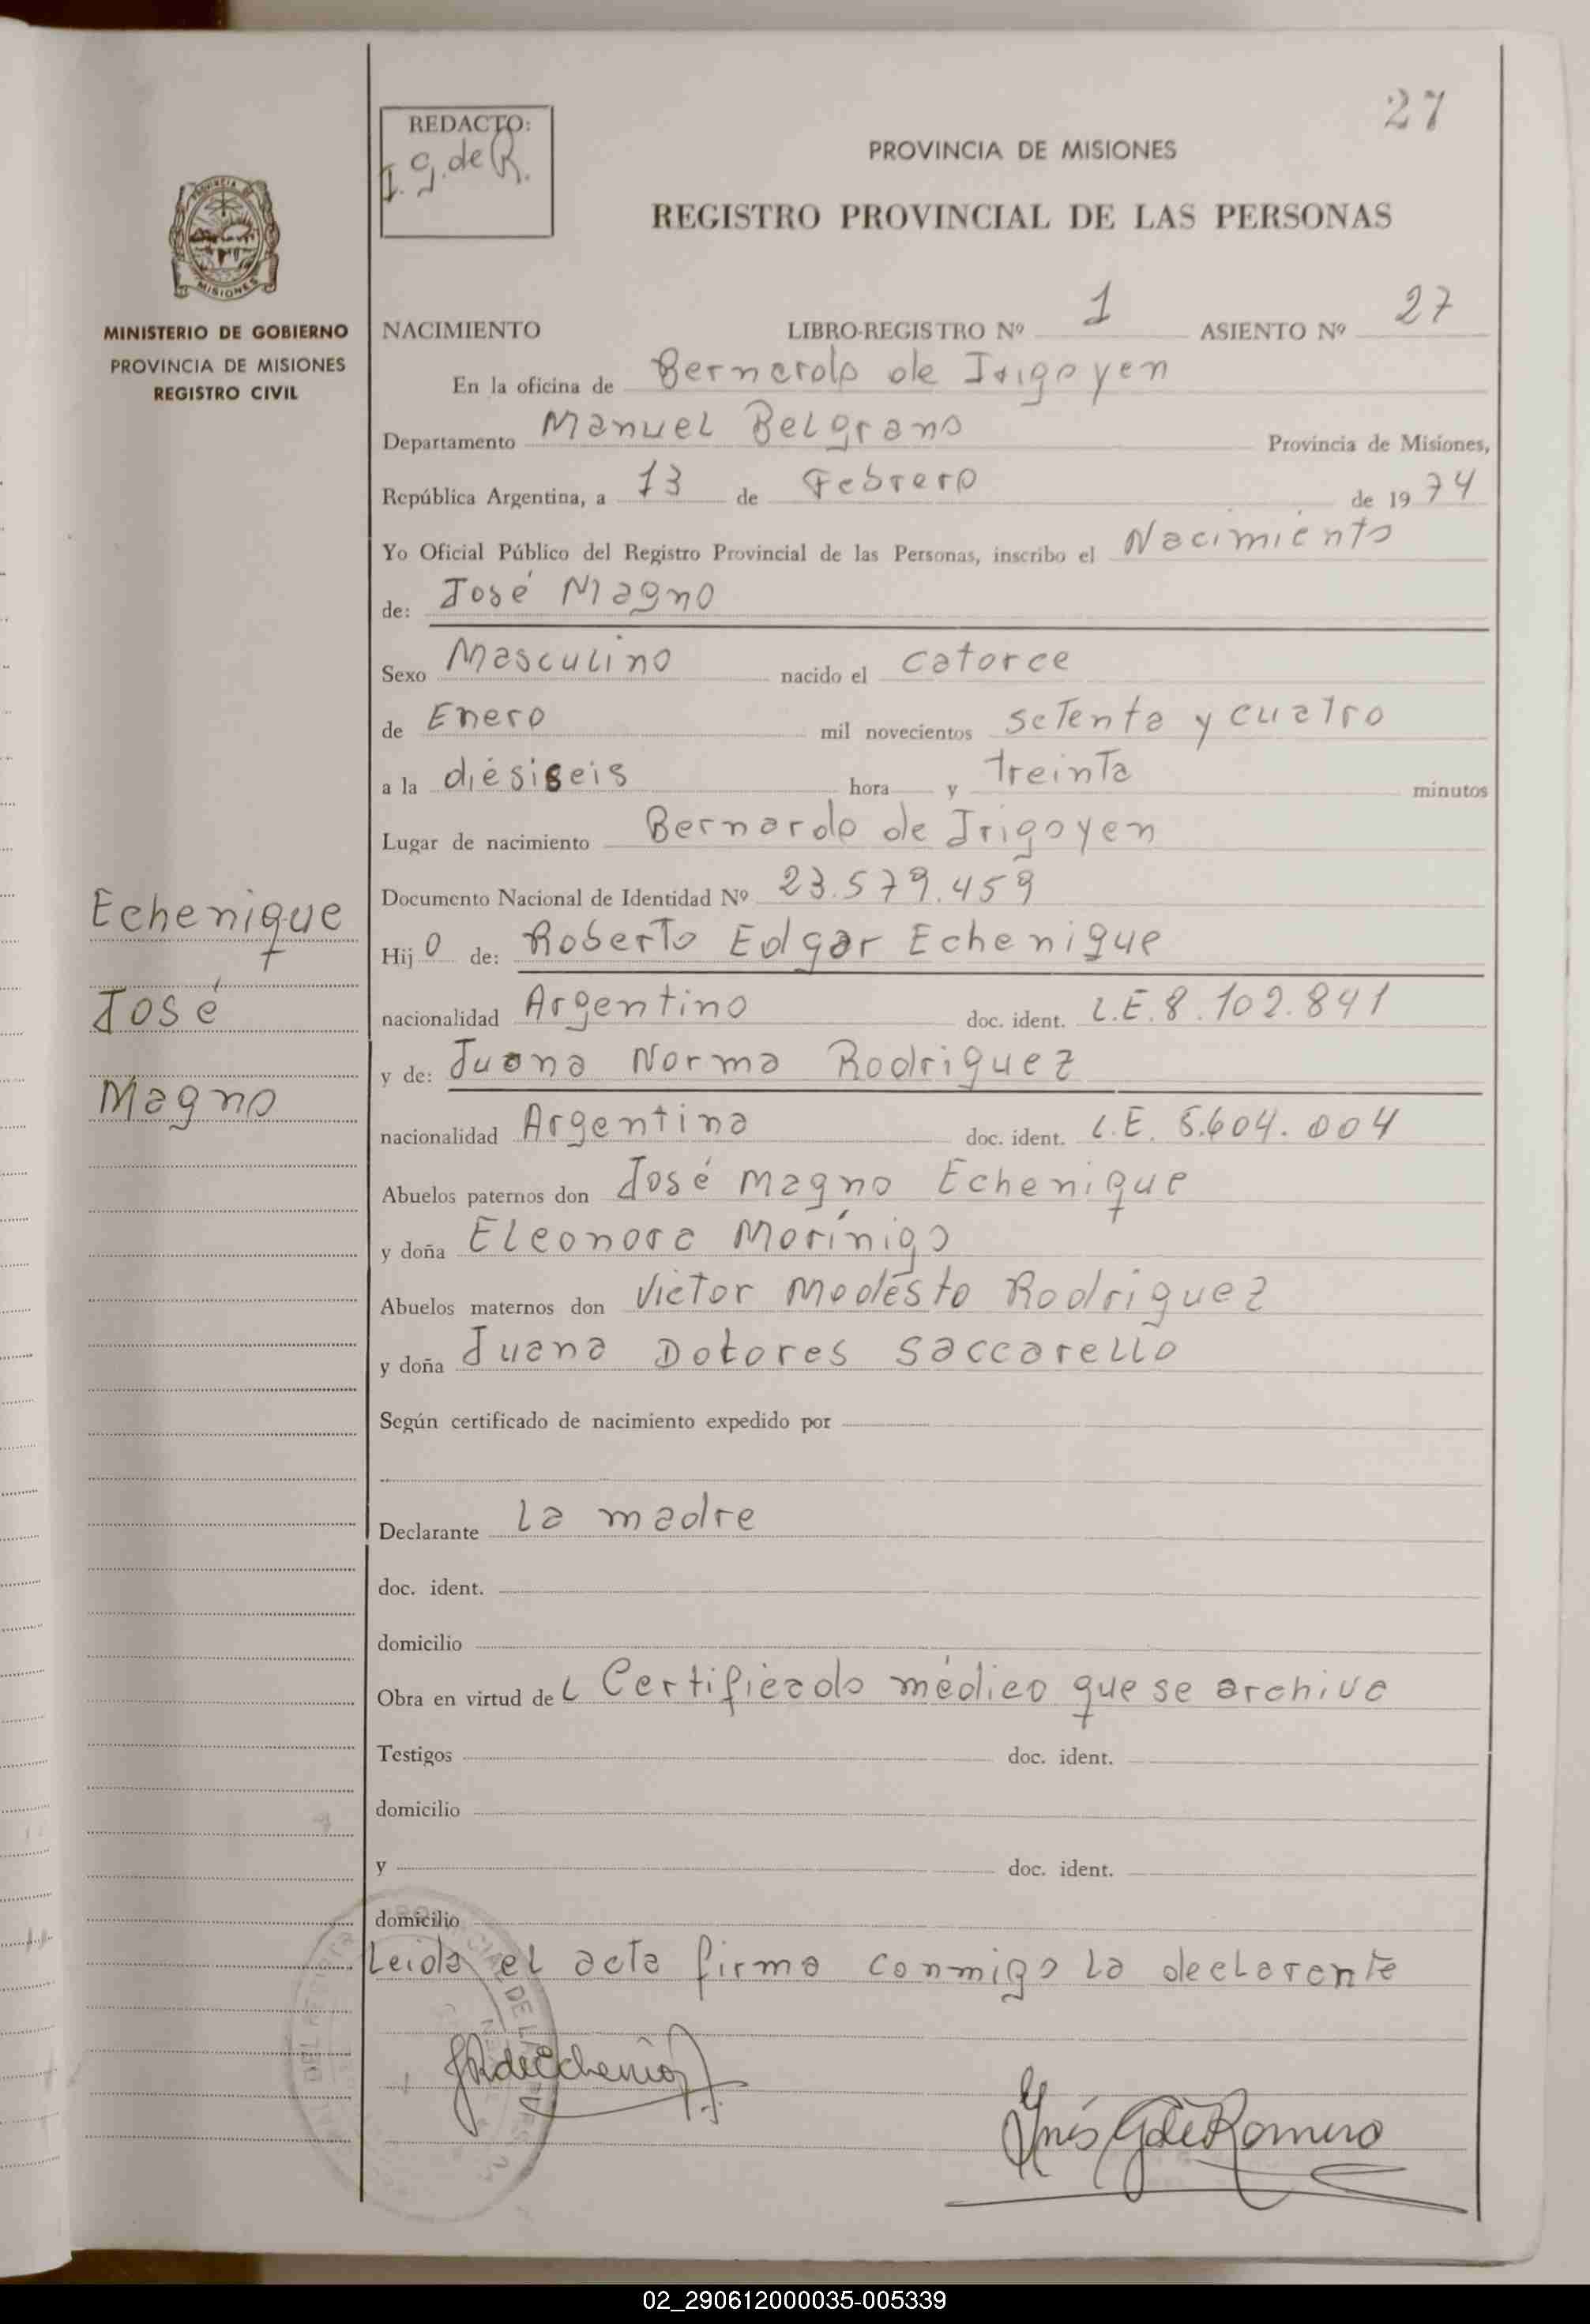 27
REDACTO:
I. G. de R.
PROVINCIA DE MISIONES
REGISTRO PROVINCIAL DE LAS PERSONAS
PROVINCIA DE
MISIONES
MINISTERIO DE GOBIERNO
PROVINCIA DE MISIONES
REGISTRO CIVIL
NACIMIENTO LIBRO-REGISTRO Nº 1 ASIENTO Nº 27
En la oficina de Bernardo de Irigoyen
Departamento Manuel Belgrano Provincia de Misiones,
República Argentina, a 13 de Febrero de 1974
Yo Oficial Público del Registro Provincial de las Personas, inscribo el Nacimiento
de: José Magno
Sexo Masculino nacido el catorce
de Enero mil novecientos setenta y cuatro
a la diésiseis hora y treinta minutos
Lugar de nacimiento Bernardo de Irigoyen
Documento Nacional de Identidad Nº 23.579.459
Echenique
José
Magno
Hijo de: Roberto Edgar Echenique
nacionalidad Argentino doc. ident. L.E. 8.102.841
y de: Juana Norma Rodriguez
nacionalidad Argentina doc. ident. L.E. 5.604.004
Abuelos paternos don José Magno Echenique
y doña Eleonora Morínigo
Abuelos maternos don Victor Modésto Rodriguez
y doña Juana Dolores Saccarello
Según certificado de nacimiento expedido por
Declarante La madre
doc. ident.
domicilio
Obra en virtud del Certificado médico que se archiva
Testigos doc. ident.
domicilio
y doc. ident.
domicilio
Leida el acta firma conmigo la declarante
JRdeEchenique
Inés G de Romero
02_290612000035-005339